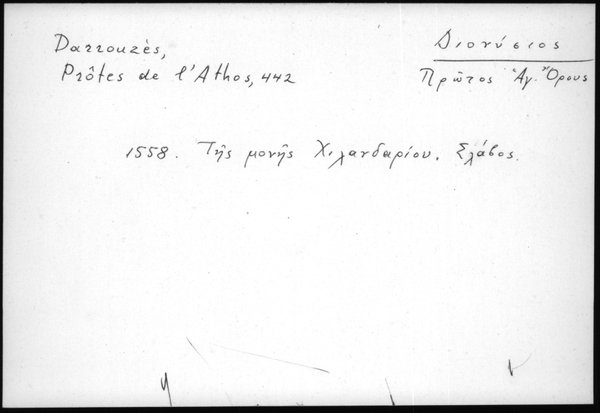 Darrouzès,
Prôtes de l'Athos, 442
Διονύσιος
Πρῶτος Ἁγ. Ὄρους
1558. Τῆς μονῆς Χιλανδαρίου. Σλάβος.